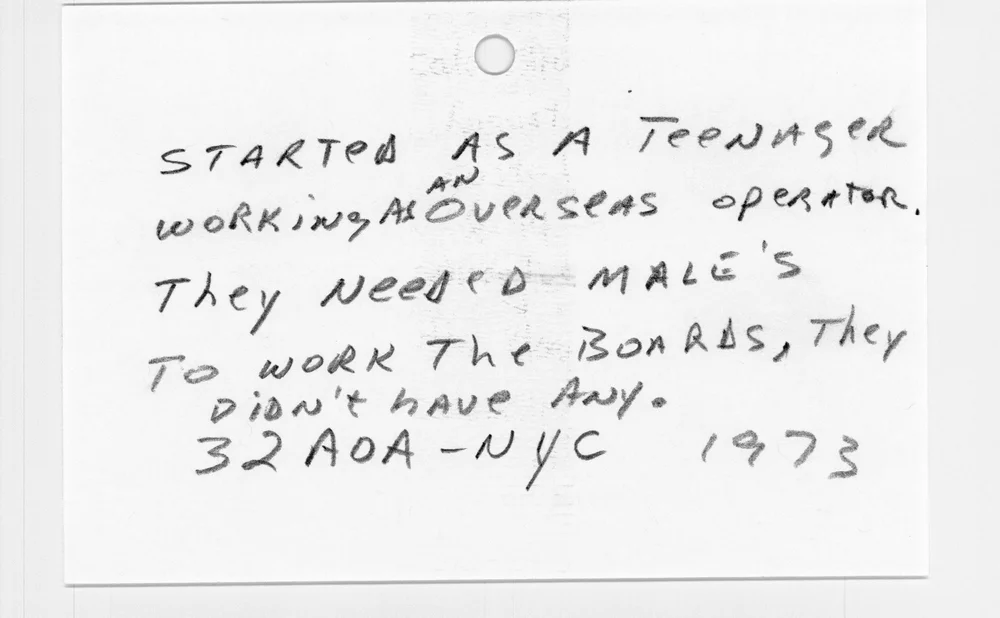 STARTED AS A TEENAGER
WORKING AS AN OVERSEAS OPERATOR.
They NeeDeD MALE'S
TO WORK The BOARDS, They
DiDN't hAve ANY.
32 AOA - NYC 1973